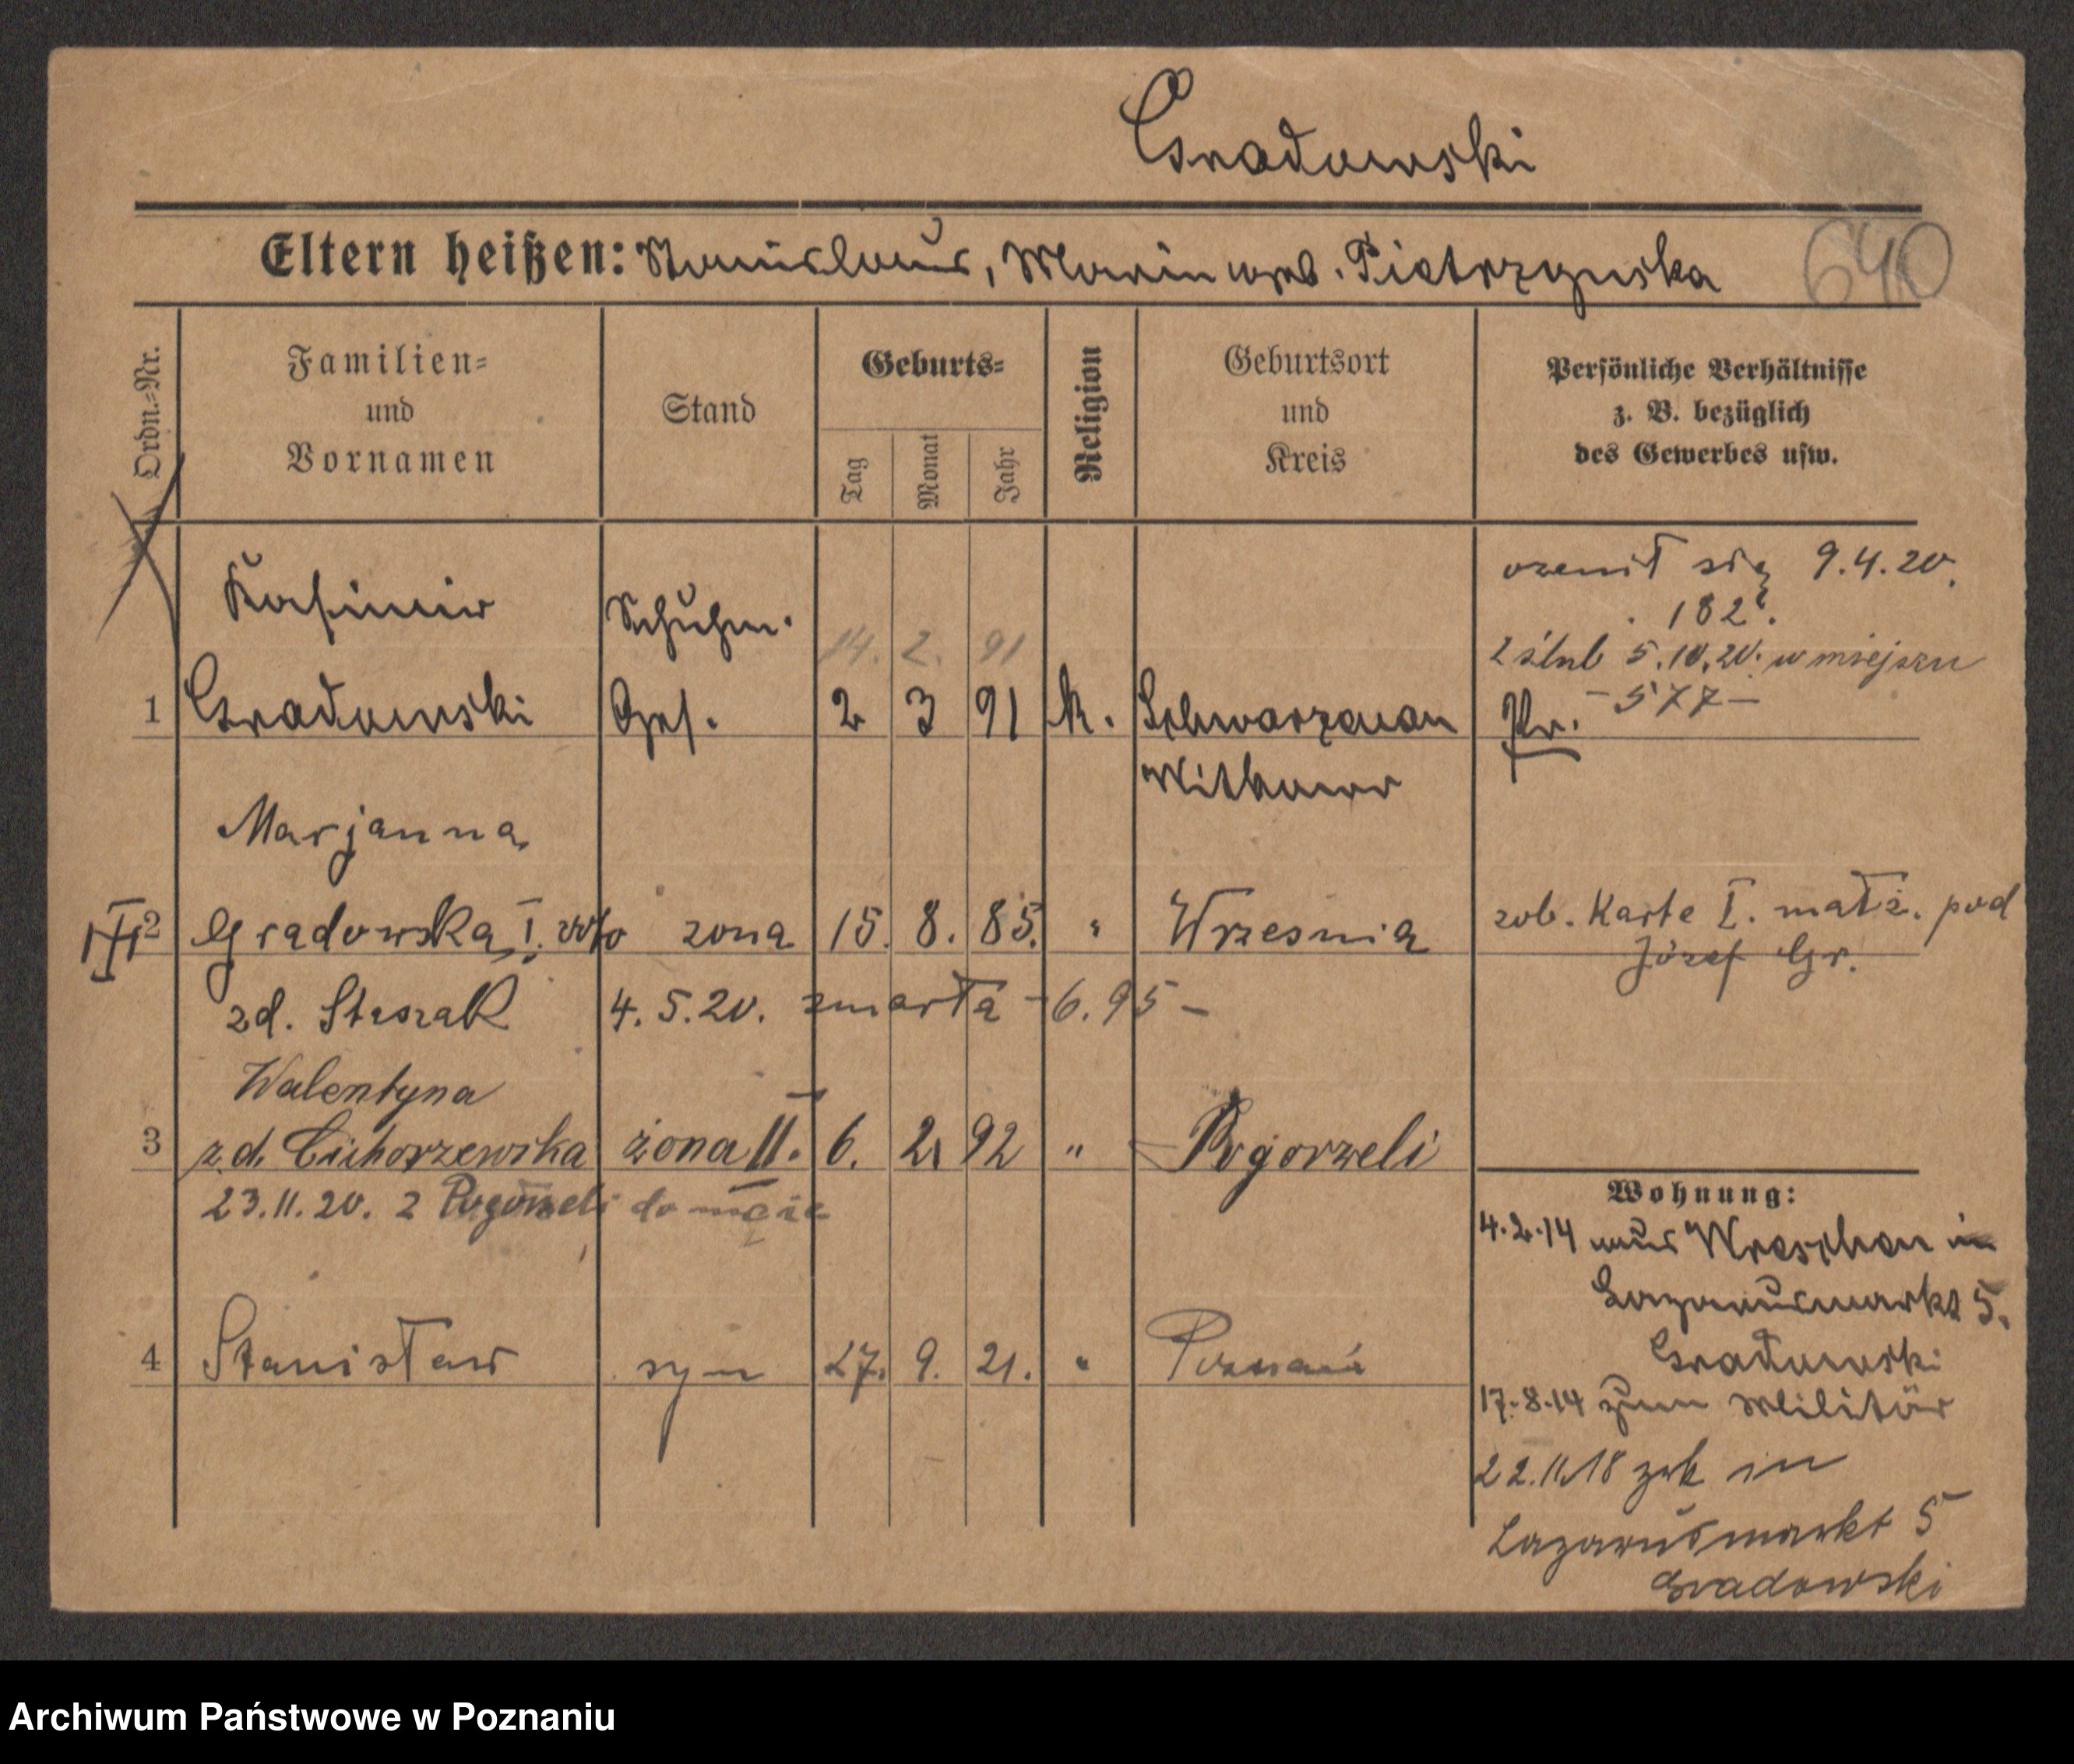 Gradowski
Eltern heißen: Stanislaus, Maria geb. Pietrzynska
640
Ordn.-Nr.
Familien-
und
Vornamen
Stand
Geburts-
Tag
Monat
Jahr
Religion
Geburtsort
und
Kreis
Persönliche Verhältnisse
z. B. bezüglich
des Gewerbes usw.
ożenił się 9.4.20.
182
Kasimir
Schuhm.
14. 2. 91
2 ślub 5.10.20. w miejscu
- 577 -
1 Gradowski Ges. 2 3 91 k. Schwarzenau Pr.
Witkowo
Marjanna
2 Gradowska I. voto żona 15. 8. 85. " Wrzesnia zob. Karte I. małż. pod
Józef Gr.
zd. 4.5.20. zmarła - 6.95 -
Walentyna
3 z.d. Cichorzewska żona II. 6. 2 92 " Pogorzeli
23.11.20. z Pogorzeli do męża
Wohnung:
4.2.14 aus Wreschen in
Lazarusmarkt 5.
Gradowski
4 Stanisław syn 27. 9. 21. " Poznań
17.8.14 zum Militär
22.11.18 zrk in
Lazarusmarkt 5
Gradowski
Archiwum Państwowe w Poznaniu